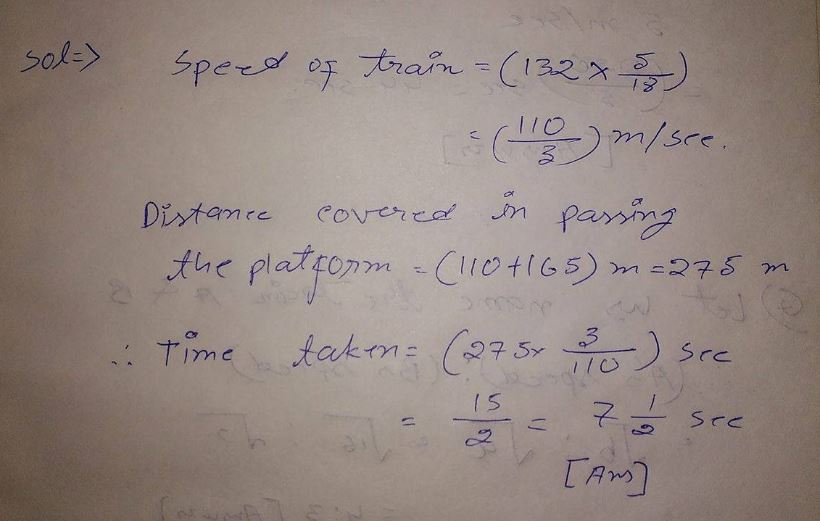 Sol=> Speed of train = (132 × 5/18)
= (110/3) m/sec.
Distance covered in passing
the platform = (110+165) m = 275 m
∴ Time taken = (275× 3/110) sec
= 15/2 = 7 1/2 sec
[Ans]